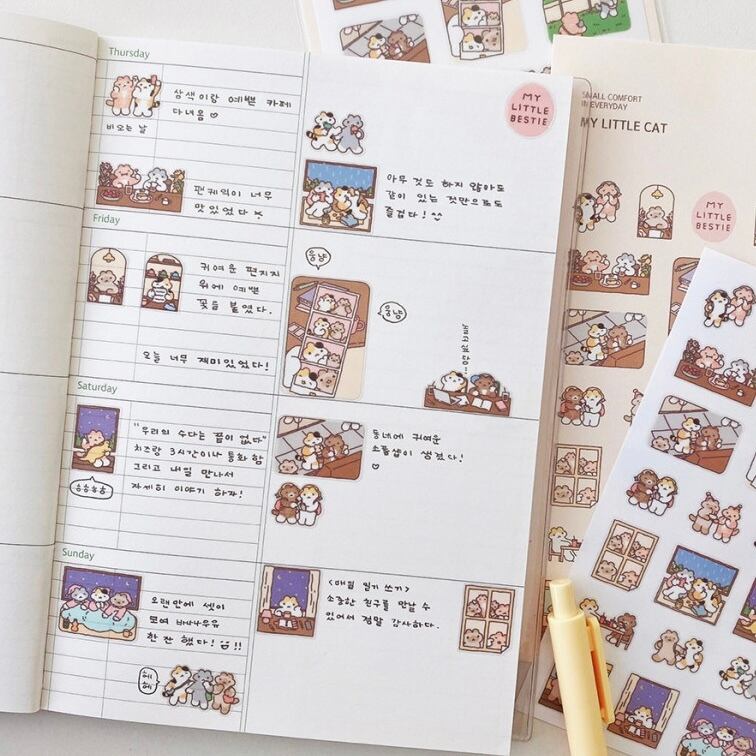 Thursday
삼색이랑 예쁜 카페
다녀옴
비오는 날
팬케익이 너무
맛있었다
MY
LITTLE
BESTIE
아무 것도 하지 않아도
같이 있는 것만으로도
즐겁다!
Friday
귀여운 편지지
위에 예쁜
꽃을 붙였다.
오늘 너무 재미있었다!
응냥
응냥
Saturday
"우리의 수다는 끝이 없다"
치즈랑 3시간이나 통화 함
그리고 내일 만나서
자세히 이야기 하자!
ㅎㅎㅎㅎ
동네에 귀여운
소품샵이 생겼다!
Sunday
오랜만에 셋이
모여 바나나우유
한 잔 했다!
!!
헤
헤
<매일 일기 쓰기>
소중한 친구를 만날 수
있어서 정말 감사하다.
SMALL COMFORT
IN EVERYDAY
MY LITTLE CAT
MY
LITTLE
BESTIE